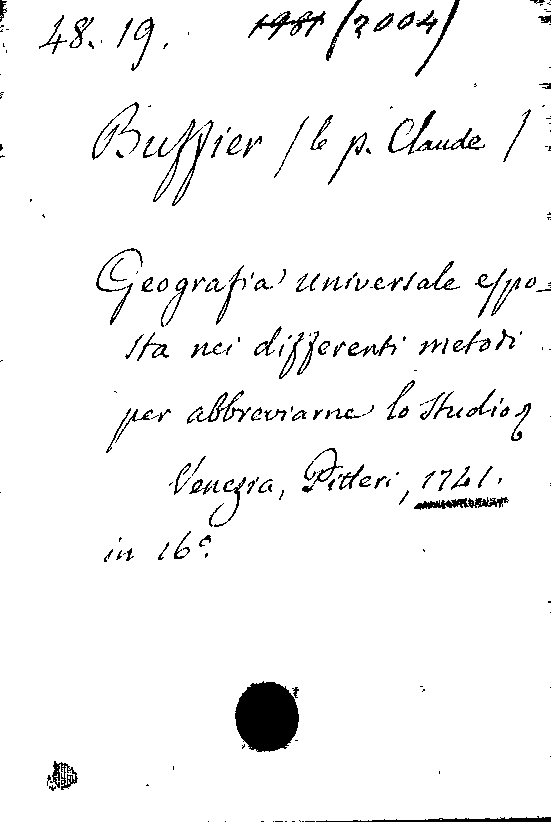 48. 19. 1981 (2004)
Buffier / le p. Claude /
Geografia universale espo-
sta nei differenti metodi
per abbreviarne lo studio
Venezia, Pitteri, 1741.
in 16º.